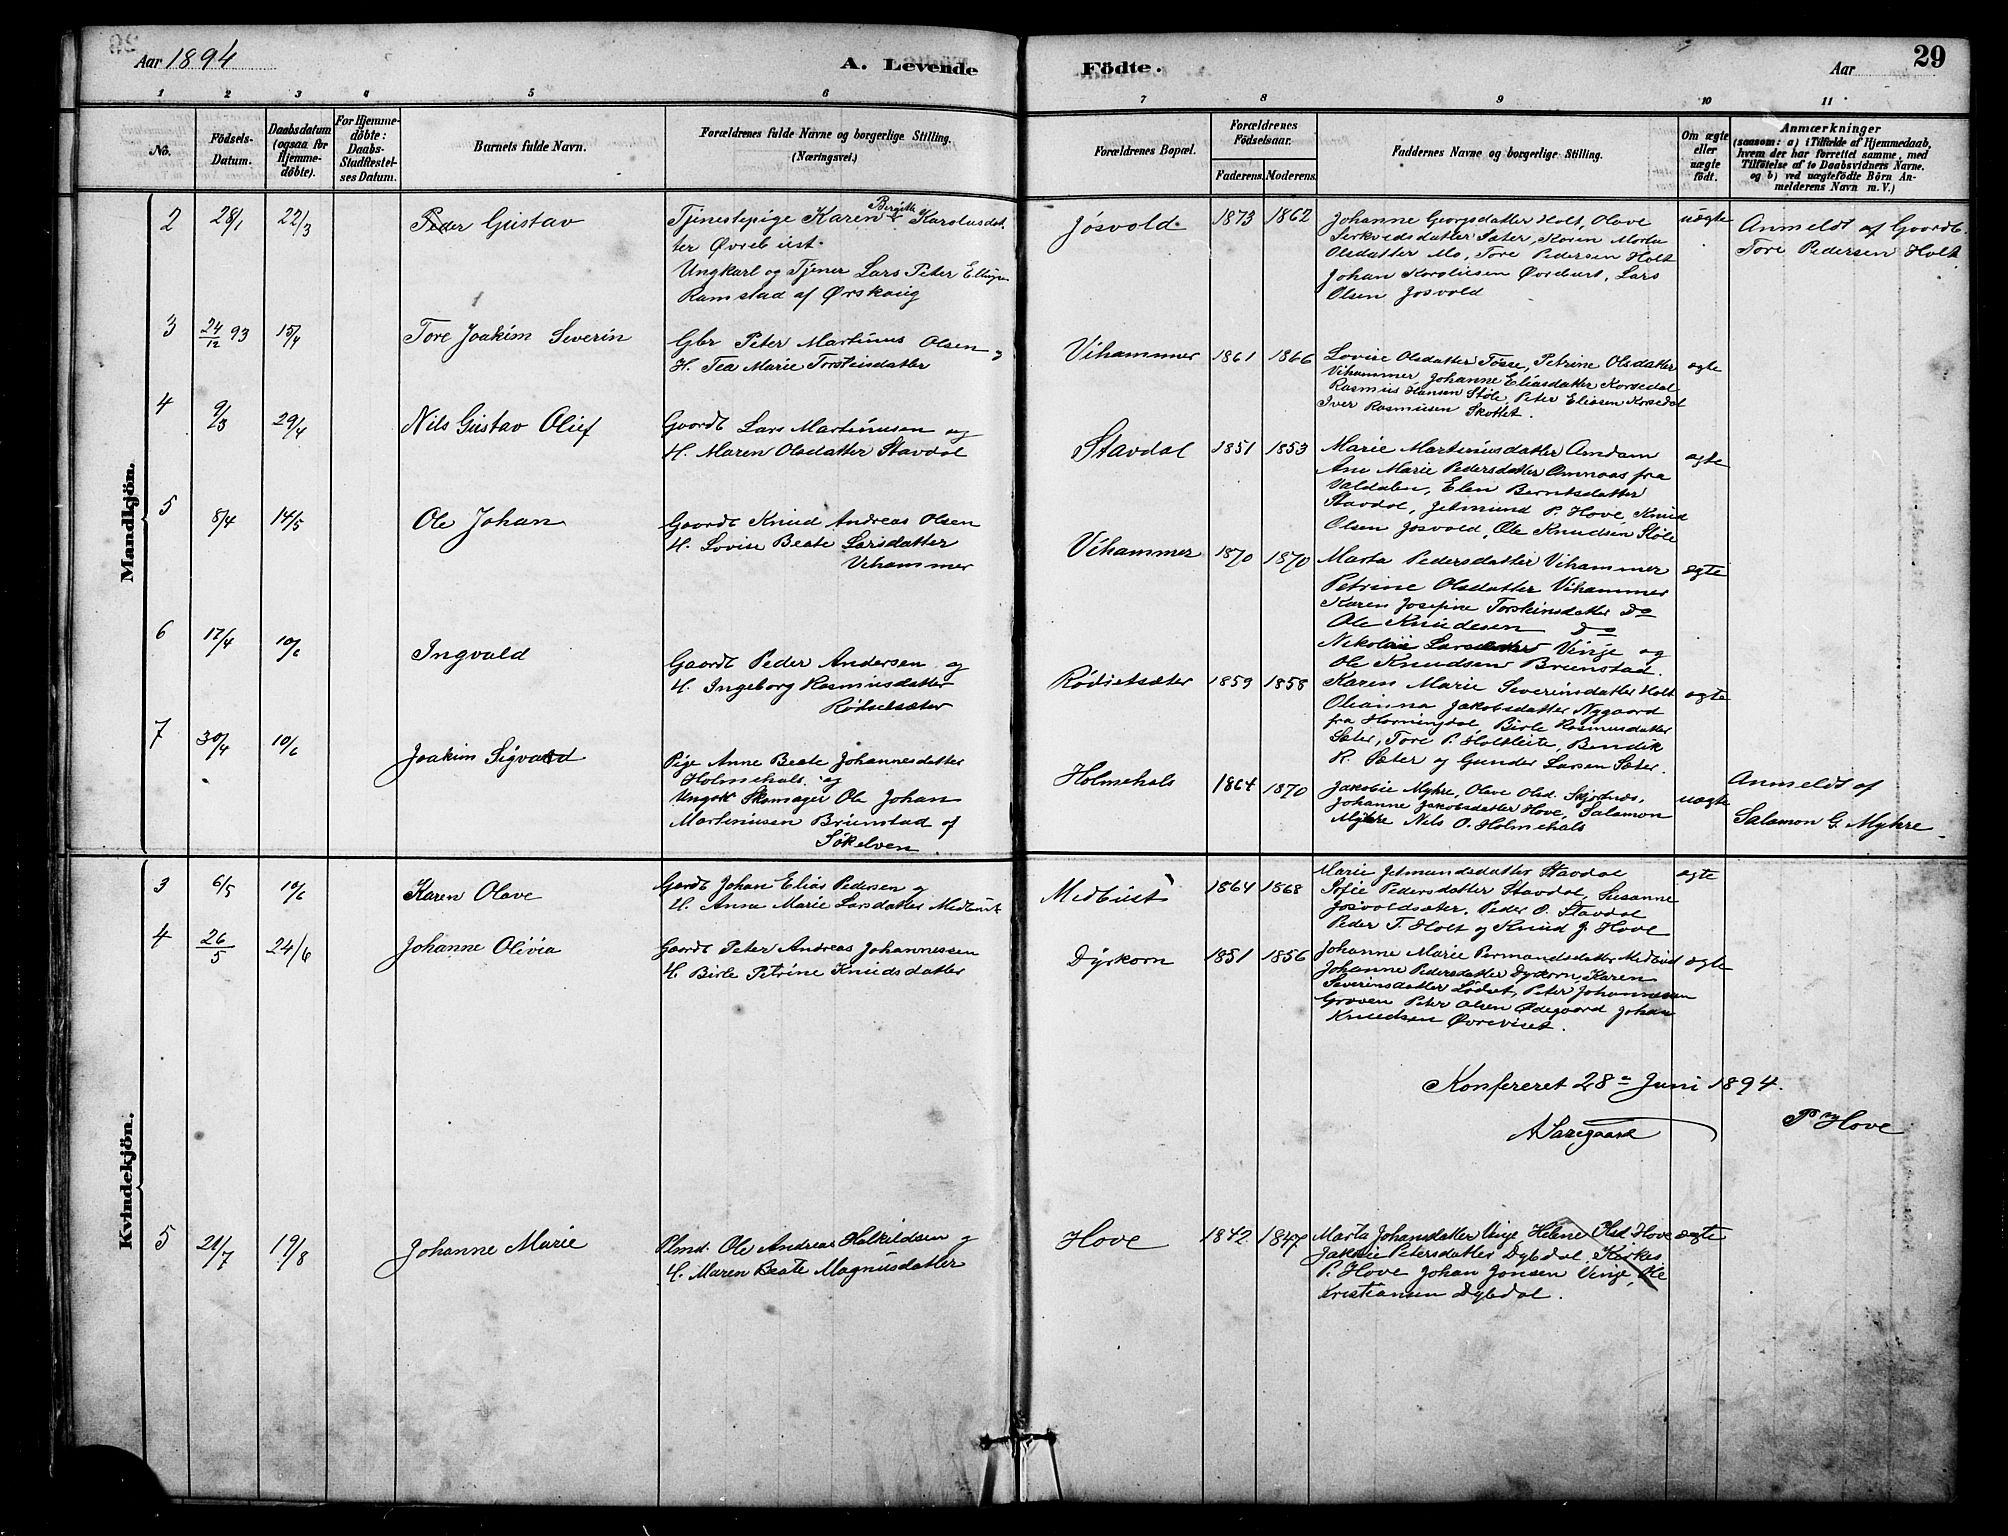 Aar 1894
A. Levende
Födte.
Aar
29
1 2 3 4 5 6 7 8 9 10 11
No.
Födsels-Datum.
Daabsdatum (ogsaa for Hjemme-döbte).
For Hjemme-döbte: Daabs-Stadfæstel-ses Datum.
Barnets fulde Navn.
Forældrenes fulde Navne og borgerlige Stilling.
(Næringsvei.)
Forældrenes Bopæl.
Forældrenes Födselsaar.
Faderens. Moderens.
Faddernes Navne og borgerlige Stilling.
Om ægte eller uægte födt.
Anmærkninger
(saasom: a) i Tilfælde af Hjemmedaab,
hvem der har forrettet samme, med
Tilföielse af to Daabsvidners Navne.
og b) ved uægtefödte Börn An-
melderens Navn m. V.)
Mandkjön.
2 28/1 22/3 Peder Gustav
Tjenestepige Karen Birgith Karolusdat
ter Øvrebust
Ungkarl og Tjener Lars Peter
Ramstad af Ørskoug
Jøsvold 1873 1862
Johanne Georgsdatter Holt, Olave
Sæter, Karen Marta
Olsdatter Mo, Tore Pedersen Holt
Johan Karolusen Øvrebust, Lars
Olsen Jøsvold
uægte
Anmeldt af Gaardb.
Tore Pedersen Holt
3 24/12 93 15/4 Tore Joakim Severin
Gbr Peter Martinus Olsen og
H. Tea Marie Torstensdatter
Vihammer 1861 1866
Lovise Olsdatter Tøsse, Petrine Olsdatter
Vihammer Johanne Eliasdatter Korsedal
Rasmus Hansen Støle, Peter Eliasen Korsedal
Iver Rasmusen Skottet.
ægte
4 9/3 29/4 Nils Gustav Oluf
Gaardb Lars Martinusen og
H. Maren Olsdatter Stavdal
Stavdal 1851 1853
Marie Martinusdatter Amdam
Ane Marie Pedersdatter Omnoas fra
Valdalen, Elen Berntsdatter
Stavdal, Jetmund P. Hove Knud
Olsen Jøsvold, Ole Knudsen Støle
ægte
5 8/4 14/5 Ole Johan
Gaardb Knud Andreas Olsen
H. Lovise Beate Larsdatter
Vihammer
Vihammer 1870 1870
Marta Pedersdatter Vihammer
Petrine Olsdatter Vihammer
Karen Josefine Torstensdatter Do
Ole Knudesen Do
Nikolai Vinje og
Ole Knudsen Brunstad.
ægte
6 17/4 10/6 Ingvald
Gaardb Peder Andersen og
H. Ingeborg Rasmusdatter
Rødsetsæter
Rødsetsæter 1859 1858
Karen Marie Severinsdatter Holt
Olianna Jakobsdatter Nygaard
fra Horningdal, Birte Rasmusdatter
Sæter, Tore P. Holtleite, Bendik
R. Sæter og Gunder Larsen Sæter.
ægte
7 30/4 10/6 Joakim Sigvard
Pige Anne Beate Johannesdatter
Holmehals og
Ungk Skomager Ole Johan
Martinusen Brunstad af
Søkelven
Holmehals 1864 1870
Jakobie Myhre, Olave Olsd. Skjortnes,
Johanne Jakobsdatter Hove, Salamon
Myhre Nils O. Holmehals
uægte
Anmeldt af
Salamon G. Myhre
Kvindekjön.
3 6/5 10/6 Karen Olave
Gaardb Johan Elias Pedersen og
H. Anna Marie Larsdatter Medbust
Medbust 1864 1868
Marie Jetmundsdatter Stavdal
Sofie Pedersdatter Stavdal, Susanne
Jøsvoldsæter, Peder O. Stavdal
Peder T. Holt og Knud J. Hove
ægte
4 26/5 24/6 Johanne Olivia
Gaardb Peter Andreas Johannessen
H. Birte Petrine Knudsdatter
Dyrkorn 1851 1856
Johanne Marie Permandsdatter Medbust
Johanne Pedersdatter Dyrkorn, Karen
Severinsdatter Lødset, Peter Johannesen
Groven Peter Olsen Ødegaard Johan
Knudsen Øvrebust.
ægte
Konfereret 28de Juni 1894.
P Hove
5 21/7 19/8 Johanne Marie
Plmd. Ole Andreas Halkildsen og
H. Maren Beate Magnusdatter
Hove 1842 1847
Marta Johansdatter Vinje, Helene Olsd Hove
Petersdatter Dybdal,
P. Hove Johan Jonsen Vinje, Ole
Kristiansen Dybdal.
ægte